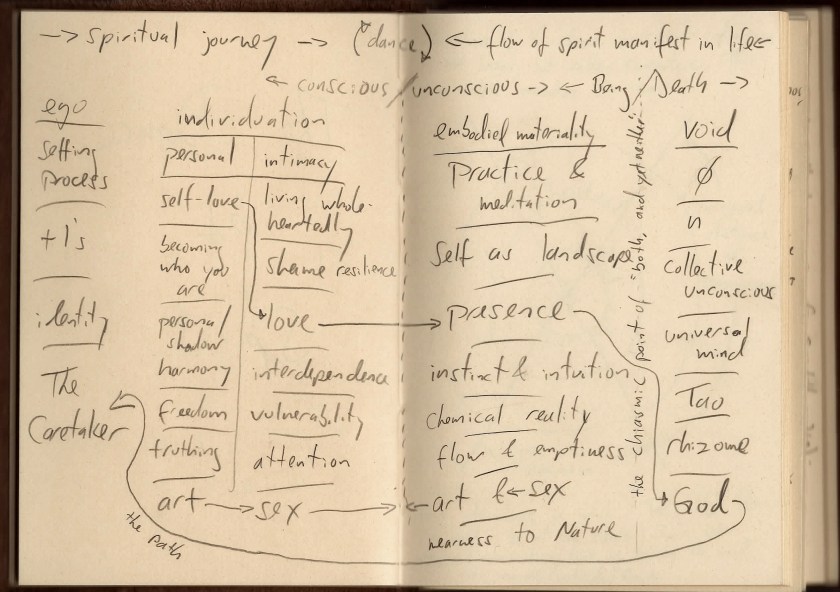 → spiritual journey → (dance) ← flow of spirit manifest in life ←
← conscious / unconscious → ← Being / Death →
ego
selfing
process
+1's
identity
The
Caretaker
individuation
personal
self-love
becoming
who you
are
personal
shadow
harmony
freedom
truthing
art →
intimacy
living whole-
heartedly
shame resilience
love →
interdependence
vulnerability
attention
sex →
embodied materiality
Practice &
meditation
Self as landscape
presence
instinct & intuition
chemical reality
flow & emptiness
← art & ← sex
nearness to Nature
the chiasmic point of "both, and yet neither"
void
∅
n
collective
unconscious
universal
mind
Tao
rhizome
God
the path